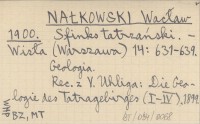 NAŁKOWSKI Wacław
1900. Sfinks tatrzański. –
Wisła (Warszawa) 14: 631-639.
Geologia.
Rec. z V. Uhliga: Die Geo-
logie des Tatragebirges (I-IV), 1899.
WHP
BZ, MT